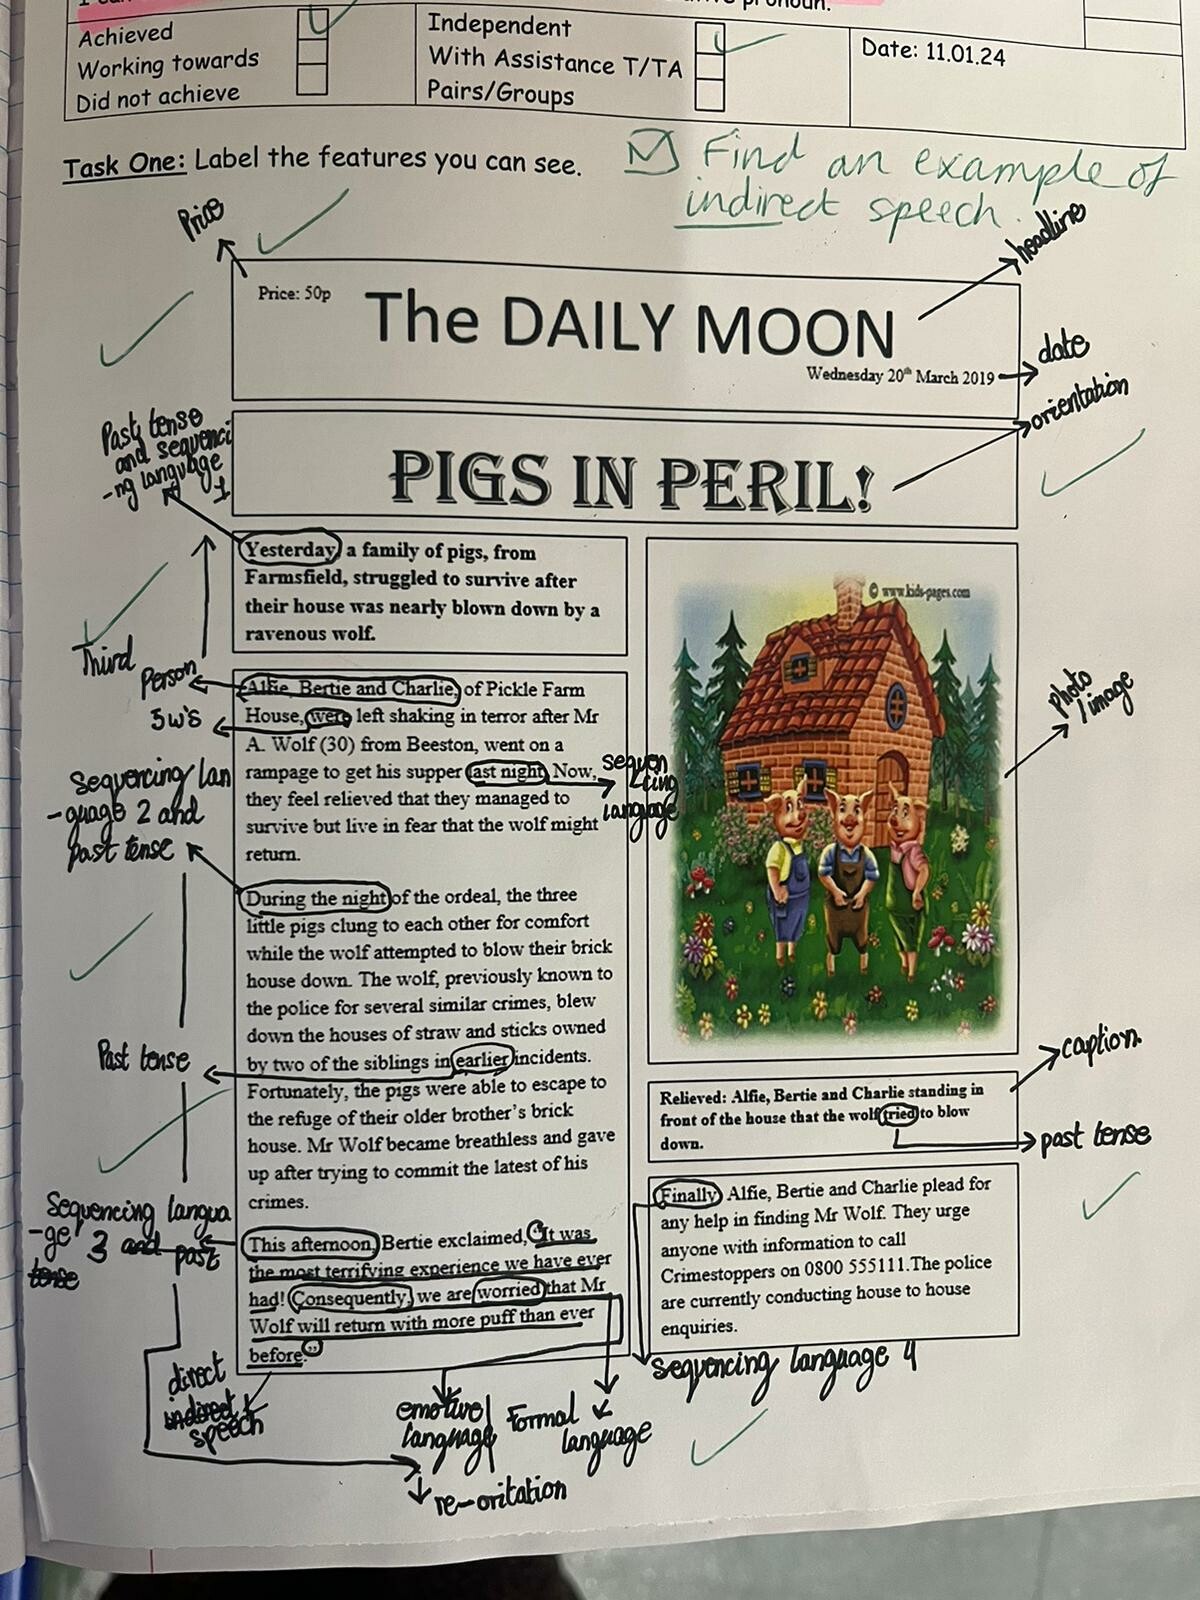 pronoun.
Achieved
Working towards
Did not achieve
Independent
With Assistance T/TA
Pairs/Groups
Date: 11.01.24
Task One: Label the features you can see.
Find an example of
indirect speech.
Price
headline
Price: 50p
The DAILY MOON
Wednesday 20th March 2019
date
orientation
PIGS IN PERIL!
Past tense
and sequenci
-ng language
1
Yesterday, a family of pigs, from
Farmsfield, struggled to survive after
their house was nearly blown down by a
ravenous wolf.
Third
Person
5w's
Alfie, Bertie and Charlie, of Pickle Farm
House, were left shaking in terror after Mr
A. Wolf (30) from Beeston, went on a
rampage to get his supper last night. Now,
they feel relieved that they managed to
survive but live in fear that the wolf might
return.
sequen
-cing
language
sequencing lan
-guage 2 and
past tense
During the night of the ordeal, the three
little pigs clung to each other for comfort
while the wolf attempted to blow their brick
house down. The wolf, previously known to
the police for several similar crimes, blew
down the houses of straw and sticks owned
by two of the siblings in earlier incidents.
Fortunately, the pigs were able to escape to
the refuge of their older brother's brick
house. Mr Wolf became breathless and gave
up after trying to commit the latest of his
crimes.
Past tense
Sequencing langua
-ge 3 and past
tense
This afternoon, Bertie exclaimed, "It was
the most terrifying experience we have ever
had! Consequently, we are worried that Mr
Wolf will return with more puff than ever
before."
direct
indirect
speech
emotive
language
Formal
language
re-oritation
© www.kids-pages.com
photo
/image
caption.
Relieved: Alfie, Bertie and Charlie standing in
front of the house that the wolf tried to blow
down.
past tense
Finally, Alfie, Bertie and Charlie plead for
any help in finding Mr Wolf. They urge
anyone with information to call
Crimestoppers on 0800 555111.The police
are currently conducting house to house
enquiries.
sequencing language 4